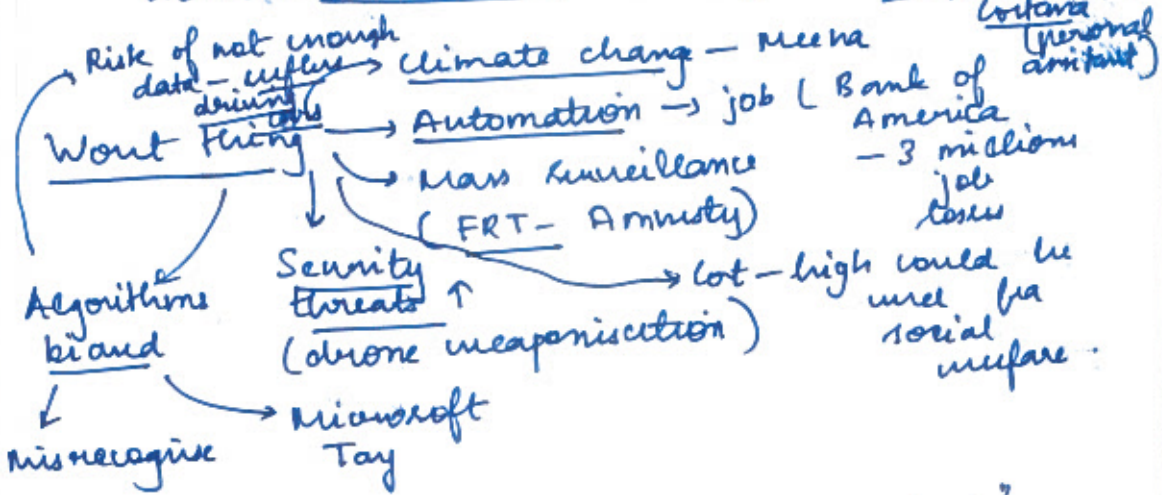 Cortana
(personal
assistant)
Risk of not enough
data - selfless
driving
cars
Worst thing
→ Climate change - Meena
→ Automation → job ( Bank of
America
- 3 millions
job
loses
→ Mass Surveillance
( FRT - Amnesty)
Security
threats ↑
(drone weaponisation)
→ Cot - high could be
used for
social
welfare.
Algorithms
biased
Misrecognise
→ Microsoft
Tay